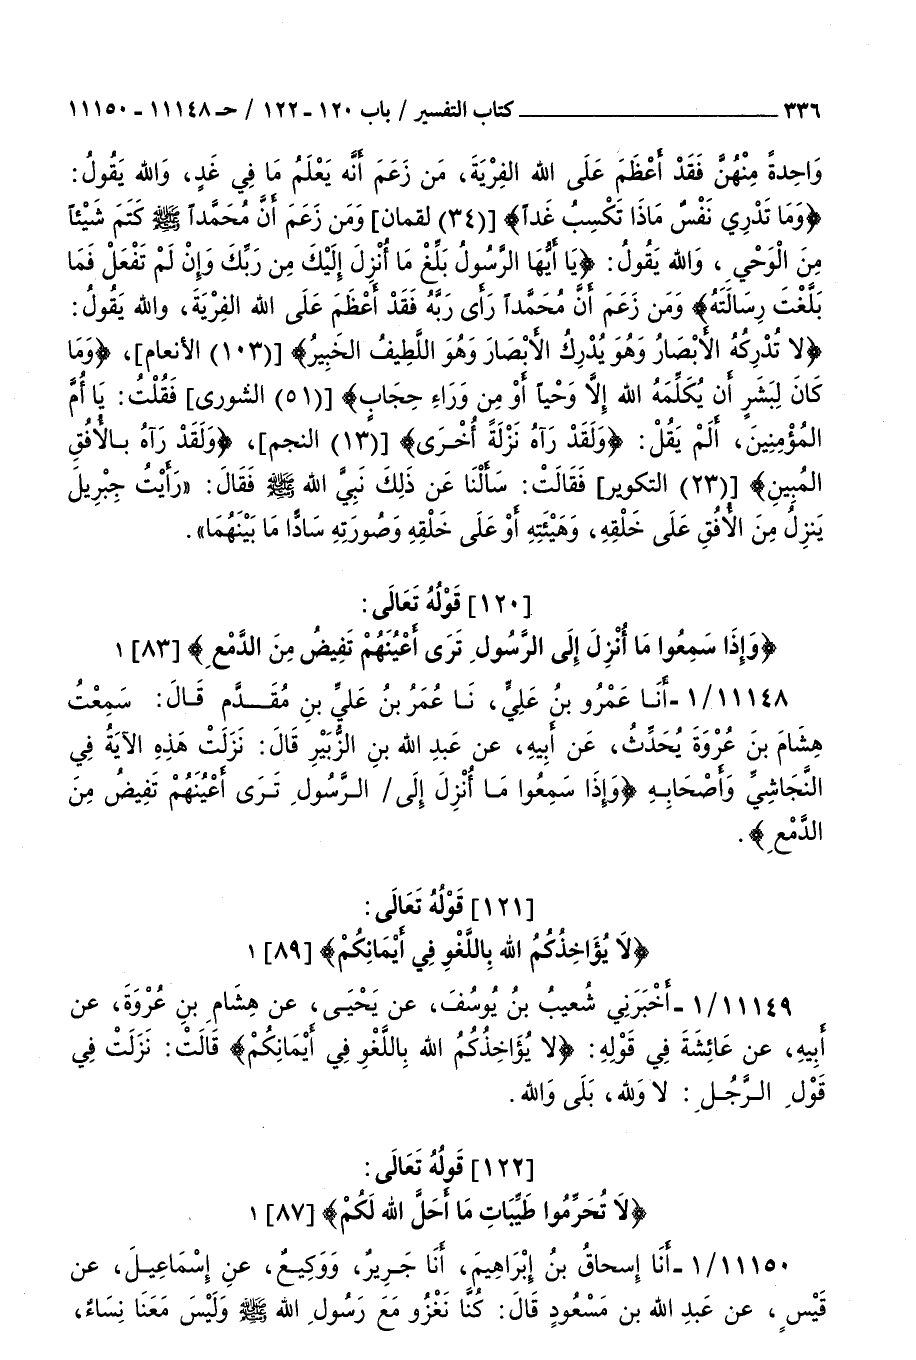 ٣٣٦ ــــــــــــــــــــــــ كتاب التفسير / باب ١٢٠ ـ ١٢٢ / حـ ١١١٤٨ ـ ١١١٥٠
وَاحِدةً مِنْهُنَّ فَقَدْ أَعْظَمَ عَلَى الله الفِرْيَةَ، مَن زَعَمَ أَنَّه يَعْلَمُ مَا فِي غَدٍ، وَالله يَقُولُ:
﴿وَمَا تَدْرِي نَفْسٌ مَاذَا تَكْسِبُ غَداً﴾ [(٣٤) لقمان] وَمَن زَعَمَ أَنَّ مُحَمَّداً ﷺ كَتَمَ شَيْئاً
مِنَ الْوَحْيِ، وَالله يَقُولُ: ﴿يَا أَيُّهَا الرَّسُولُ بَلِّغْ مَا أُنْزِلَ إِلَيْكَ مِن رَبِّكَ وَإِنْ لَمْ تَفْعَلْ فَمَا
بَلَّغْتَ رِسَالَتَهُ﴾ وَمَن زَعَمَ أَنَّ مُحَمَّداً رَأَى رَبَّهُ فَقَدْ أَعْظَمَ عَلَى الله الفِرْيَةَ، والله يَقُولُ:
﴿لا تُدْرِكُهُ الأَبْصَارُ وَهُوَ يُدْرِكُ الأَبْصَارَ وَهُوَ اللَّطِيفُ الخَبِيرُ﴾ [(١٠٣) الأنعام]، ﴿وَمَا
كَانَ لِبَشَرٍ أَن يُكَلِّمَهُ الله إِلَّا وَحْياً أَوْ مِن وَرَاءِ حِجَابٍ﴾ [(٥١) الشورى] فَقُلْتُ: يَا أُمَّ
المُؤْمِنِينَ، أَلَمْ يَقُلْ: ﴿وَلَقَدْ رَآهُ نَزْلَةً أُخْرَى﴾ [(١٣) النجم]، ﴿وَلَقَدْ رَآهُ بِالأُفُقِ
المُبِينِ﴾ [(٢٣) التكوير] فَقَالَتْ: سَأَلْنَا عَن ذَلِكَ نَبِيَّ الله ﷺ فَقَالَ: «رَأَيْتُ جِبْرِيلَ
يَنزِلُ مِنَ الأُفُقِ عَلَى خَلْقِهِ، وَهَيْئَتِهِ أَوْ عَلَى خَلْقِهِ وَصُورَتِهِ سَادًّا مَا بَيْنَهُمَا».
[١٢٠] قَوْلُهُ تَعَالَى:
﴿وَإِذَا سَمِعُوا مَا أُنْزِلَ إِلَى الرَّسُولِ تَرَى أَعْيُنَهُمْ تَفِيضُ مِنَ الدَّمْعِ﴾ [٨٣] ١
١/١١١٤٨ ـ أَنَا عَمْرُو بنُ عَلِيٍّ، نَا عُمَرُ بنُ عَلِيِّ بنِ مُقَدَّم قَالَ: سَمِعْتُ
هِشَامَ بنَ عُرْوَةَ يُحَدِّثُ، عَن أَبِيهِ، عن عَبدِ الله بنِ الزُّبَيْرِ قَالَ: نَزَلَتْ هَذِهِ الآيَةُ فِي
النَّجَاشِيِّ وَأَصْحَابِهِ ﴿وَإِذَا سَمِعُوا مَا أُنْزِلَ إِلَى/ الرَّسُولِ تَرَى أَعْيُنَهُمْ تَفِيضُ مِنَ
الدَّمْعِ﴾.
[١٢١] قَوْلُهُ تَعَالَى:
﴿لَا يُؤَاخِذُكُمُ الله بِاللَّغْوِ فِي أَيْمَانِكُمْ﴾ [٨٩] ١
١/١١١٤٩ ـ أَخْبَرَنِي شُعيبُ بنُ يُوسُفَ، عن يَحْيَى، عن هِشَامِ بنِ عُرْوَةَ، عن
أَبِيهِ، عن عَائِشَةَ فِي قَوْلِهِ: ﴿لا يُؤَاخِذُكُمُ الله بِاللَّغْوِ فِي أَيْمَانِكُمْ﴾ قَالَتْ: نَزَلَتْ فِي
قَوْلِ الرَّجُلِ: لا وَلله، بَلَى وَالله.
[١٢٢] قَولُهُ تَعَالَى:
﴿لَا تُحَرِّمُوا طَيِّبَاتِ مَا أَحَلَّ الله لَكُمْ﴾ [٨٧] ١
١/١١١٥٠ ـ أَنَا إِسحاقُ بنُ إِبْرَاهِيمَ، أَنَا جَرِيرٌ، وَوَكِيعٌ، عنِ إِسْمَاعِيلَ، عن
قَيْسٍ، عن عَبدِ الله بن مَسْعُودٍ قَالَ: كُنَّا نَغْزُو مَعَ رَسُولِ الله ﷺ وَلَيْسَ مَعَنَا نِسَاءٌ،